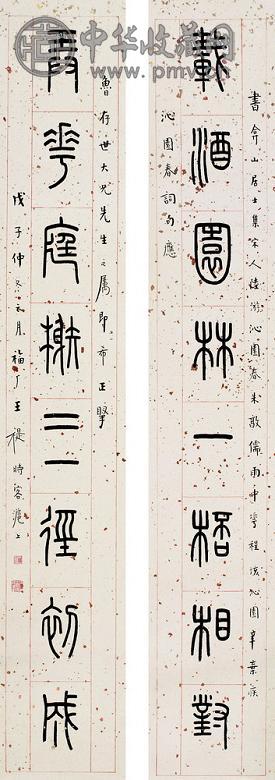 書弇山居士集宋人陸游沁園春朱敦儒雨中花程垓沁園春辛棄疾
載酒園林一桮相對
沁園春詞句應
魯存世大兄先生之属即希正擘
花庭榭三徑初成
戊子仲冬之月福厂王禔時客滬上
中华收藏网
www.pmv.cn